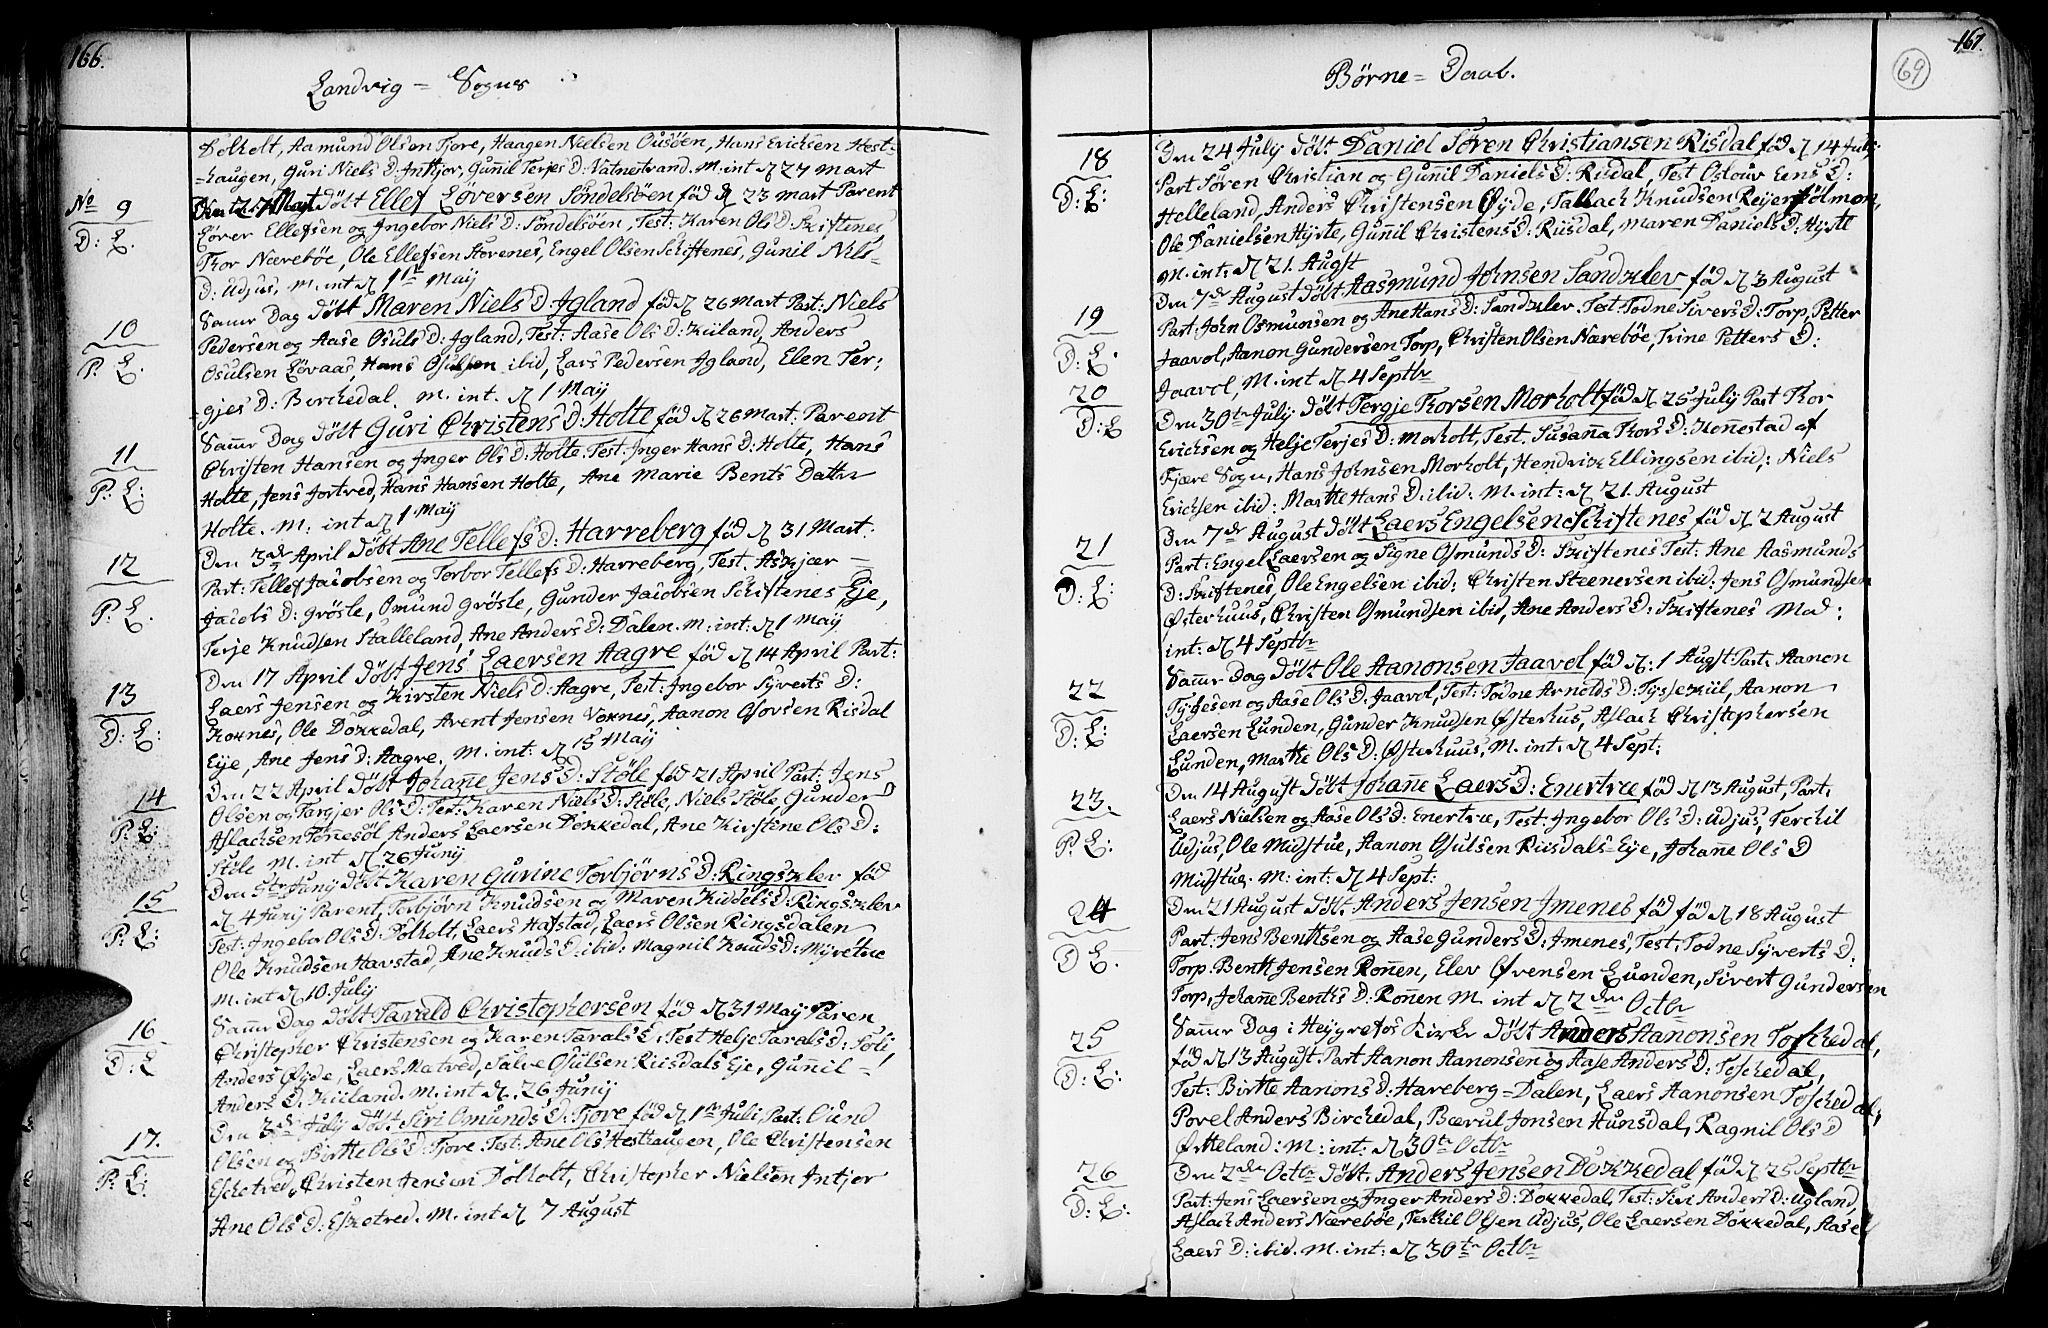 166.
Landvig = Sogns
Dolholt, Aamund Olsen Fjore, Haagen Nielsen Ousöen, Hans Erichsen Hest-
=haugen, Guri Niels D: Intjor, Gunnil Terjes D: Vatnestrand. M. int d 27 Mart
No 9
D: L.
Den 27 Mart Döbt Ellef Löversen Söndelsöen föd d 23 Mart Parent
Löver Ellefsen og Ingebor Niels D: Söndelsöen, Test: Karen Ols D: Skiftenes,
Thor Næreböe, Ole Ellefsen Horenes, Engel Olsen Skiftenes, Gunil Nils-
D: Udjus, M. int d 11te May
10
P. L.
Samr Dag Döbt Maren Niels D: Igland föd d 26 Mart Part: Niels
Pedersen og Aase Osuls D: Igland, Test: Aase Ols D: Kiiland, Anders
Osulsen Lövaas, Hans Osulsen ibid, Lars Pedersen Igland, Elen Ter-
=gjes D: Birchedal. M. int. d 1 May
11
P: L:
Samr Dag Döbt Guri Christens D: Holte föd d 26 Mart: Parent
Christen Hansen og Inger Ols D: Holte. Test: Inger Hans D: Holte, Hans
Holte, Jens Jortved, Hans Hansen Holte, Ane Marie Bents Datter
Holte. M. int d 1 May
12
P: L.
Den 3de April Döbt Ane Tellefs D: Harreberg föd d 31 Mart:
Part: Tellef Jacobsen og Torbor Tellefs D: Harreberg, Test. Askjær
Jacobs D: Grösle, Omund Grösle, Gunder Jacobsen Skiftenes Eje,
Terje Knudsen Stalleland, Ane Anders D: Dalen. M: int: d 1 May
13
D: L:
Den 17 April Döbt Jens Laersen Aagre föd d 14 April Part:
Laers Jensen og Kirsten Niels D: Aagre, Test: Ingebor Syverts D:
Voknes, Ole Dökkedal, Arent Jensen Voknes, Aanon Osovsen Risdal
Eije, Ane Jens D: Aagre. M. int: d 15 May
14
P: L:
Den 22 April Döbt Johane Jens D: Stöle föd 21 April Part: Jens
Olsen og Targjer Ols D: Test: Karen Niels D: Stöle, Niels Stöle, Gunder
Aslachsen Tönesöl, Anders Laersen Dökkedal, Ane Kirstine Ols D:
Stöle M. int d 26 Junij
15
P: L:
Den 5te Junij Döbt Karen Gurine Torbjörns D: Ringsklev föd
d 4 Junij Parent, Torbjörn Knudsen og Maren Kiddels D: Ringsklev
Test: Ingebor Ols D: Dolholt, Laers Hafstad, Laers Olsen Ringsdalen
Ole Knudsen Havstad, Ane Knuds D: ibid: Magnil Knuds D: Myretue
M. int d 10. July
16
D: L
Samr Dag Döbt Tarald Christophersen föd d 31 May Paren
Christopher Christensen og Karen Tarals D: Test Helje Tarals D: Söli,
Anders Øyde, Laers Matved, Salve Osulsen Riisdals Eje, Gunnil =
Anders D: Kiiland. M. int d. 26 Junij
17.
P: L:
Den 3de July Döbt Siri Omunds D: Fjore föd d 1te Juli, Part: Ound
Olsen og Birthe Ols D: Fjore. Test: Ane Ols Hesthaugen, Ole Christensen
Eschetved, Christen Jensen Dolholt, Christopher Nielsen Intjor
Ane Ols D: Esketved. M. int d 7 August
167.
69
Börne = Daab.
18
D: L:
Den 24 July Döbt Daniel Sören Christiansen Risdal föd d 14 July
Part Sören Christian og Gunil Daniels D: Risdal, Test Ens D:
Helleland, Anders Christensen Øyde, Tallach Knudsen Reyersölmon,
Ole Danielsen Hyste, Gunnil Christens D: Riisdal, Maren Daniels D: Hyste
M. int: d 21. Augst
19
D: L.
Den 7de August Döbt Aasmund Johnsen Sandklev föd d 3 August
Part: John Osmunsen og Ane Hans D: Sandklev. Test: Todne Sivers D: Torp, Petter
Jaavol, Aanon Gundersen Torp, Christen Olsen Næreböe, Trine Petters D:
Jaavol, M. int d 4 Septbr
20
D: L
Den 30te July Döbt Tergje Thorsen Morholt föd d 25 July Part Thor
Erichsen og Helje Terjes D: Morholt, Test. Susanna Thors D: Konnestad af
Fjære Sogn, Hans Johnsen Morholt, Hendrik Ellingsen ibid: Niels
Erichsen ibid: Marthe Hans D: ibid: M. int: d 21. August
21
D: L:
Den 7de August Döbt Laers Engelsen Skiftenes föd d 2 August
Part: Engel Laersen og Signe Osmunds D: Skiftenes Test: Ane Aasmunds
D: Skiftenes, Ole Engelsen ibid: Christen Steenersen ibid: Jens Osmundsen
Østerhuus, Christen Osmundsen ibid, Ane Anders D: Skiftenes Mad:
int: d 4 Septbr
22
D: L:
Samr Dag Döbt Ole Aanonsen Jaavol föd d: 1 Augst Part. Aanon
Tygesen og Aase Ols D: Jaavol, Test: Todne Arnolds D: Tysjekiil, Aanon
Laersen Lunden, Gunder Knudsen Østerhus, Aslach Christophersen
Lunden, Marthe Ols D: Østerhuus, M. int: d 4 Sept:
23.
P: L:
Den 14 August Döbt Johanne Laers D: Enertræ föd d 13 August, Part:
Laers Nielsen og Aase Ols D: Enertræ, Test: Ingebor Ols D: Udjus, Terchil
Udjus, Ole Midstue, Aanon Osulsen Riisdals-Eje, Johanne Ols D
Midstue. M: int: d 4 Sept:
24
D L.
Den 21 August Döbt. Anders Jensen Imenes föd föd d 18 August
Part: Jens Benthsen og Aase Gunders D: Imenes, Test: Todne Syverts D:
Torp. Benth Jensen Ronnen, Elev Øvensen Lunden, Sivert Gundersen
Torp, Johanne Benths D: Ronnen M. int d 2den Octbr
25
D: L:
Samr Dag i Heygrefos Kirke Döbt Anders Aanonsen Toschedal,
föd d 13 August. Part Aanon Aanonsen og Aase Anders D: Toschedal,
Test: Birthe Aanons D: Hareberg=Dalen, Laers Aanonsen Toschedal,
Povel Anders Birchedal, Bærul Jonsen Hunsdal, Ragnil Ols D
Øitteland: M: int: d 30te Octbr
26
D: L:
Den 2den Octbr Döbt. Anders Jensen Dökkedal föd d 25 Septbr
Part: Jens Laersen og Inger Anders D: Dökkedal, Test: Siri Anders D: Ugland,
Aslach Anders Næreböe, Terkil Olsen Udjus, Ole Laersen Dökkedal, Aase
Laers D: ibid. M. int: d 30te Octbr